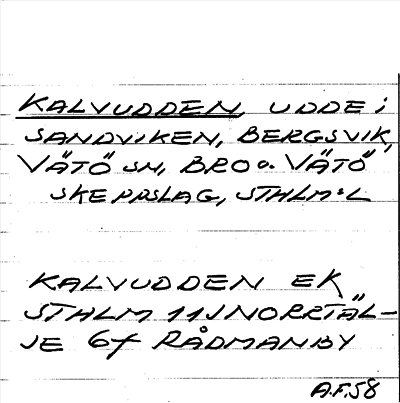 KALVUDDEN, UDDE i
SANDVIKEN, BERGSVIK,
VÄTÖ SN, BRO o. VÄTÖ
SKEPPSLAG, STHLM:L
KALVUDDEN EK
STHLM 11J NORRTÄL-
JE 6f RÅDMANBY
A.F.58